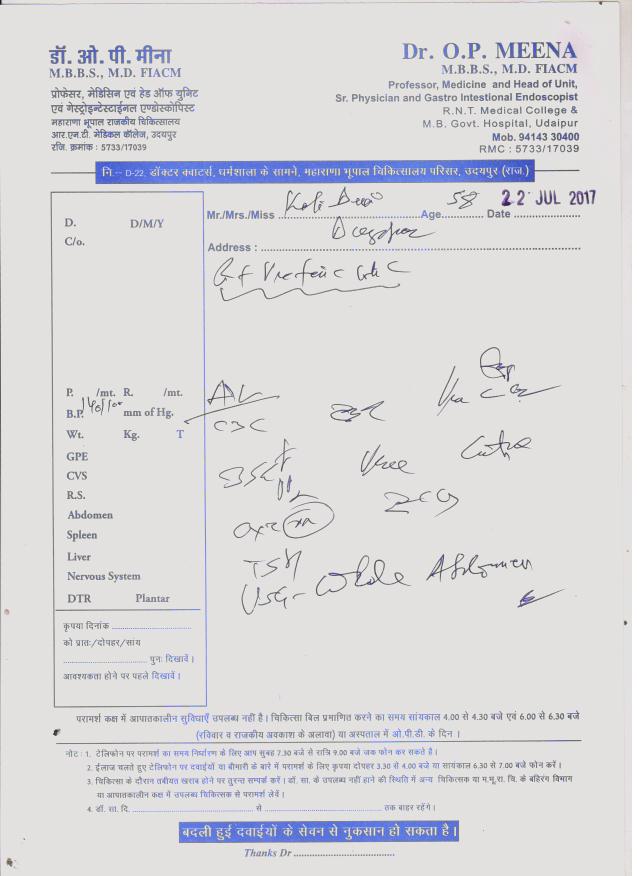 डॉ. ओ. पी. मीना
M.B.B.S., M.D. FIACM
प्रोफेसर, मेडिसिन एवं हेड ऑफ यूनिट
एवं गेस्ट्रोइन्टेस्टाईनल एण्डोस्कोपिस्ट
महाराणा भूपाल राजकीय चिकित्सालय
आर.एन.टी. मेडिकल कॉलेज, उदयपुर
रजि. क्रमांक : 5733/17039
Dr. O.P. MEENA
M.B.B.S., M.D. FIACM
Professor, Medicine and Head of Unit,
Sr. Physician and Gastro Intestional Endoscopist
R.N.T. Medical College &
M.B. Govt. Hospital, Udaipur
Mob. 94143 30400
RMC : 5733/17039
नि.- D-22, डॉक्टर क्वाटर्स, धर्मशाला के सामने, महाराणा भूपाल चिकित्सालय परिसर, उदयपुर (राज.)
D. D/M/Y
C/o.
Mr./Mrs./Miss Age 58 Date 22 JUL 2017
Address :
P. /mt. R. /mt.
B.P. 140/100 mm of Hg.
Wt. Kg. T
GPE
CVS
R.S.
Abdomen
Spleen
Liver
Nervous System
DTR Plantar
CBC
ECG
TSH
USG- Whole Abdomen
कृपया दिनांक
को प्रातः/दोपहर/सांय
पुनः दिखावें।
आवश्यकता होने पर पहले दिखावें।
परामर्श कक्ष में आपातकालीन सुविधाएँ उपलब्ध नहीं है। चिकित्सा बिल प्रमाणित करने का समय सांयकाल 4.00 से 4.30 बजे एवं 6.00 से 6.30 बजे
(रविवार व राजकीय अवकाश के अलावा) या अस्पताल में ओ.पी.डी. के दिन।
नोट : 1. टेलिफोन पर परामर्श का समय निर्धारण के लिए आप सुबह 7.30 बजे से रात्रि 9.00 बजे तक फोन कर सकते है।
2. ईलाज चलते हुए टेलिफोन पर दवाईयों या बीमारी के बारे में परामर्श के लिए कृपया दोपहर 3.30 से 4.00 बजे या सायंकाल 6.30 से 7.00 बजे फोन करें।
3. चिकित्सा के दौरान तबीयत खराब होने पर तुरन्त सम्पर्क करें। डॉ. सा. के उपलब्ध नहीं हाने की स्थिति में अन्य चिकित्सक या म.भू.रा. चि. के बहिरंग विभाग
या आपातकालीन कक्ष में उपलब्ध चिकित्सक से परामर्श लेवें।
4. डॉ. सा. दि. से तक बाहर रहेंगे।
बदली हुई दवाईयों के सेवन से नुकसान हो सकता है।
Thanks Dr